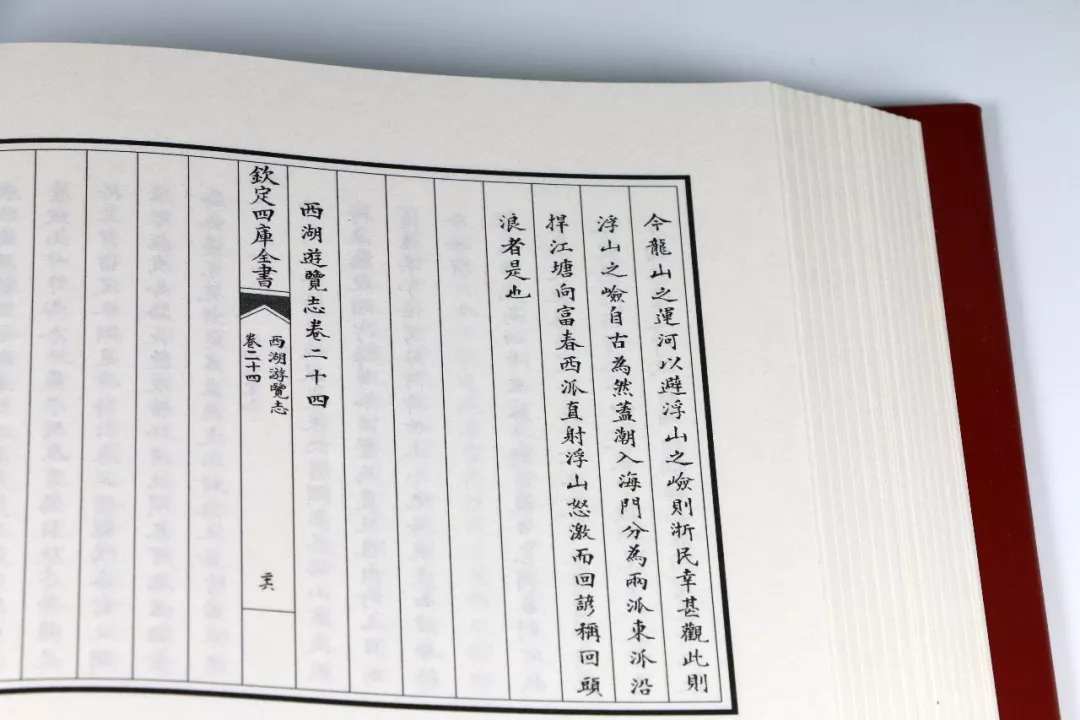 今龍山之運河以避浮山之嶮則浙民幸甚觀此則
浮山之嶮自古為然蓋潮入海門分為兩派東派沿
捍江塘向富春西派直射浮山怒激而回諺稱回頭
浪者是也
西湖遊覽志卷二十四
欽定四庫全書
西湖游覽志
卷二十四